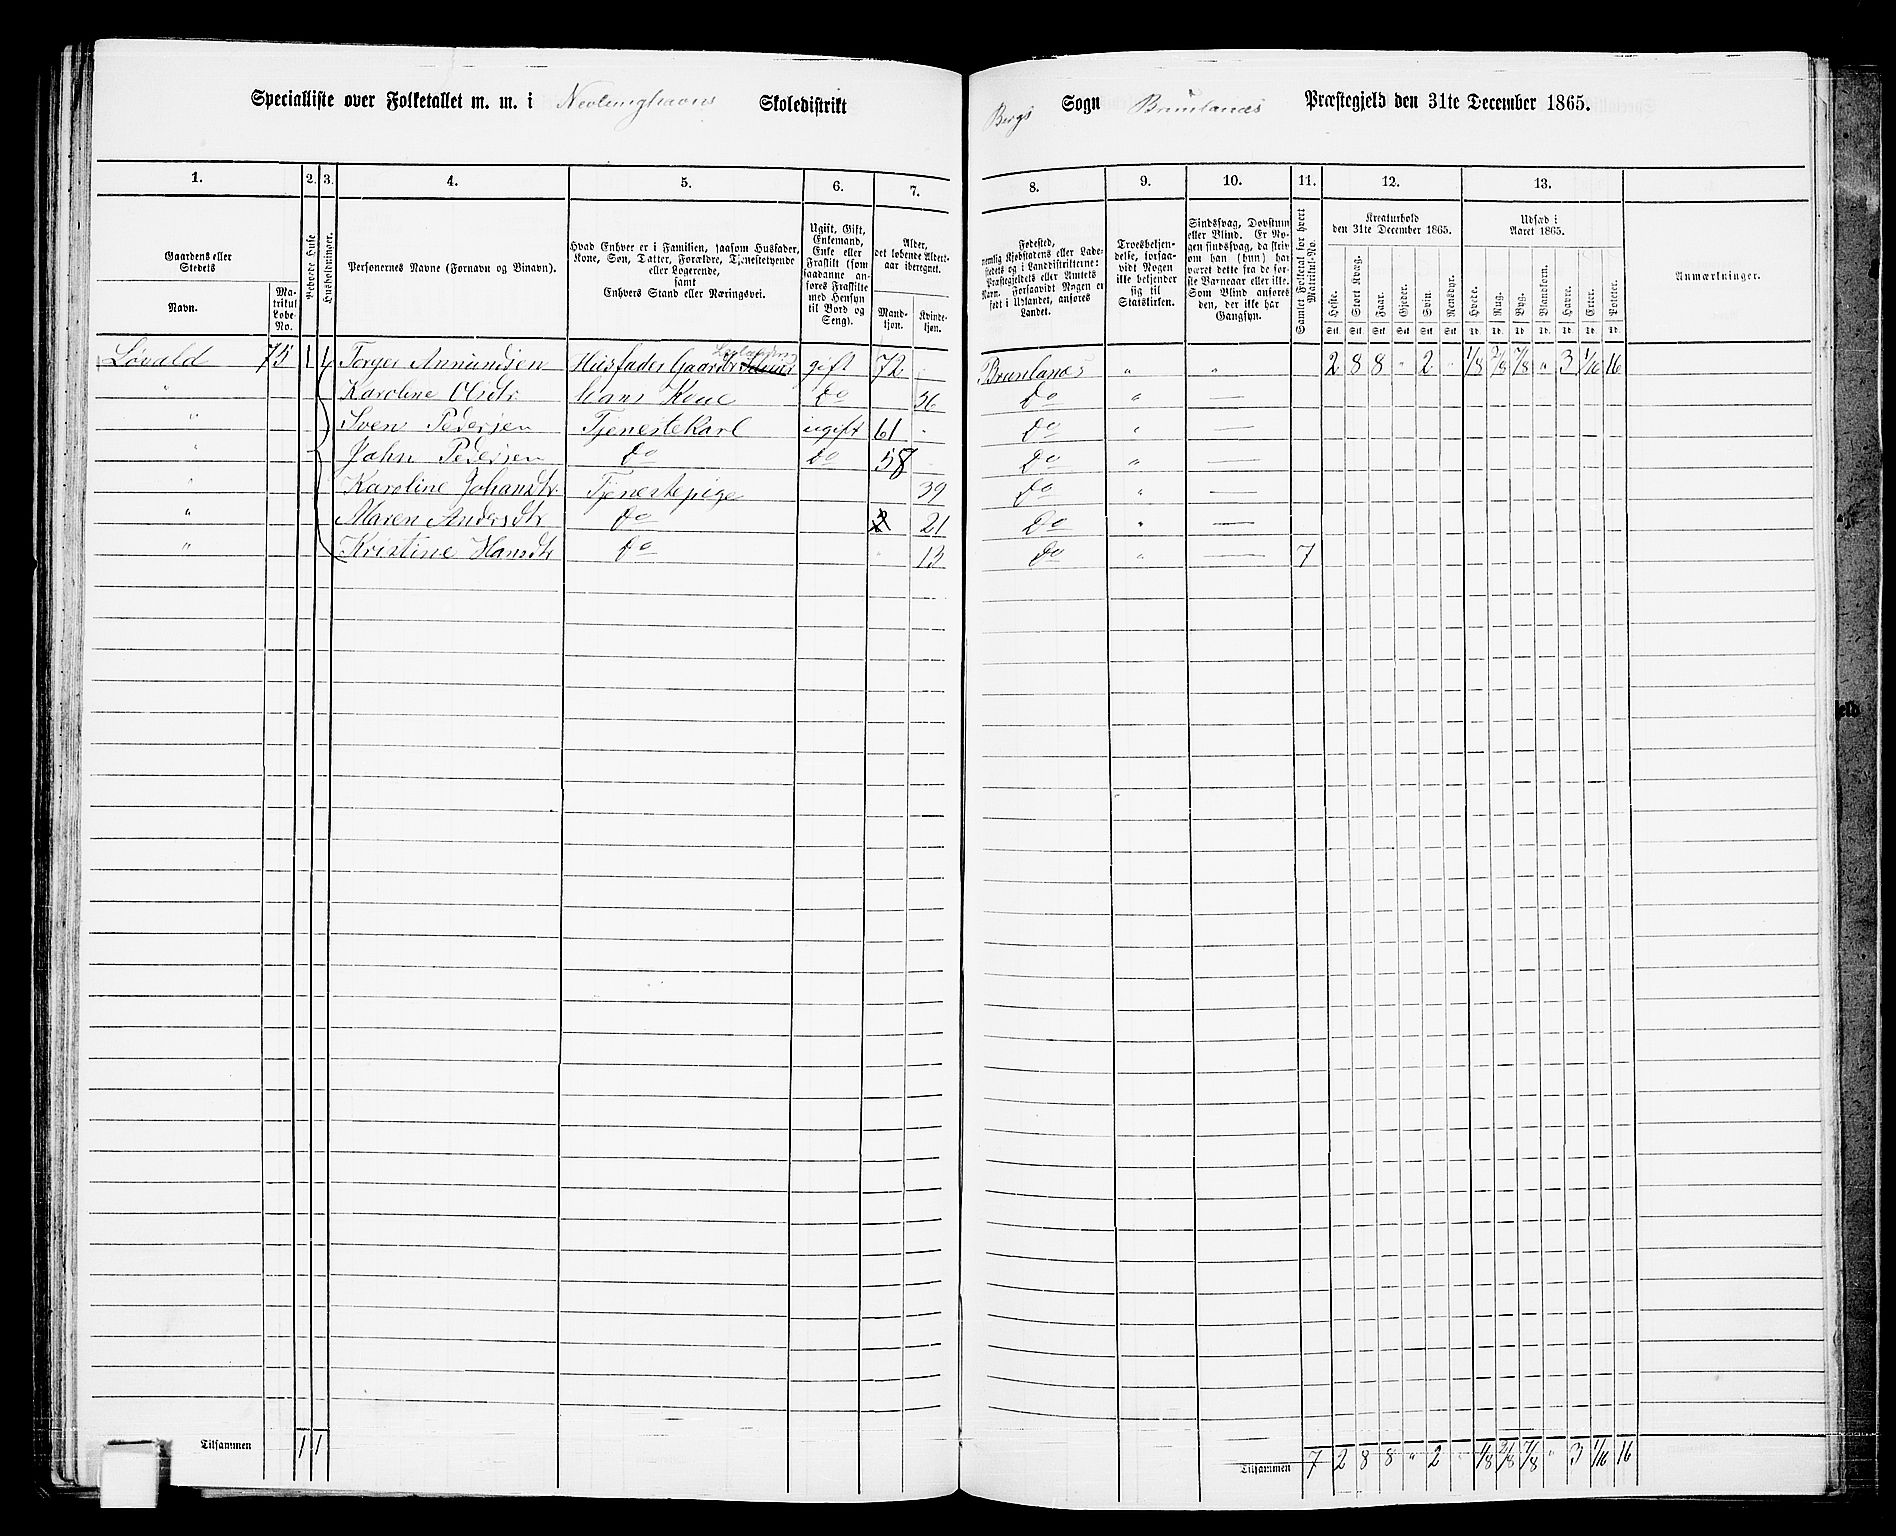 Specialliste over Folketallet m. m. i Nevlunghavns Skoledistrikt
Bergs Sogn Brunlanæs Præstegjeld den 31te December 1865.
1. 2. 3. 4. 5. 6. 7. 8. 9. 10. 11. 12. 13.
Gaardens eller Stedets
Navn.
Matrikul Løbe-No.
Beboede Huse
Husholdninger.
Personernes Navne (Fornavn og Binavn).
Hvad Enhver er i Familien, saasom Husfader,
Kone, Søn, Datter, Forældre, Tjenestetyende
eller Logerende,
samt
Enhvers Stand eller Næringsvei.
Ugift, Gift,
Enkemand,
Enke eller
Fraskilt (som
saadanne an-
føres Fraskilte
med Hensyn
til Bord og
Seng).
Alder,
det løbende Alders-
aar iberegnet.
Mand-
kjøn.
Kvinde-
kjøn.
Fødested,
nemlig Kjøbstadens eller Lade-
stedets og i Landdistrikterne:
Præstegjeldets eller Amtets
Navn. Forsaavidt Nogen er
født i Udlandet, anføres
Landet.
Troesbekjen-
delse, forsaa-
vidt Nogen
ikke bekjender
sig til
Statskirken.
Sindssvag, Døvstum
eller Blind. Er No-
gen sindssvag, da skriv
om han (hun) har
været dette fra de før-
ste Barneaar eller ikke.
Som Blind anføres
den, der ikke har
Gangsyn.
Samlet Folketal for hvert
Matrikul-No.
Kreaturhold
den 31te December 1865.
Heste. Stort Kvæg. Faar. Gjeder. Svin. Rensdyr.
Stk. Stk. Stk. Stk. Stk. Stk.
Udsæd i
Aaret 1865.
Hvede. Rug. Byg. Blandkorn. Havre. Erter. Poteter.
Td. Td. Td. Td. Td. Td. Td.
Anmærkninger.
Lovald 75 1 1 Torger Amundsen Husfader Gaardbr gift 72 Brunlanæs " " 2 8 8 " 2 " 1/8 2/8 7/8 " 3 1/16 16
" Karoline Olsdtr hans Kone Do 36 Do " —
" Sven Pedersen Tjenestekarl ugift 61 Do " —
" John Pedersen Do Do 58 Do " —
" Karoline Johansdtr. Tjenestepige 39 Do " —
" Maren Andersdtr Do 21 Do " —
" Kristine Hansdtr Do " 13 Do " — 7
Tilsammen 1 1
Tilsammen 7 2 8 8 " 2 " 1/8 2/8 7/8 " 3 1/16 16